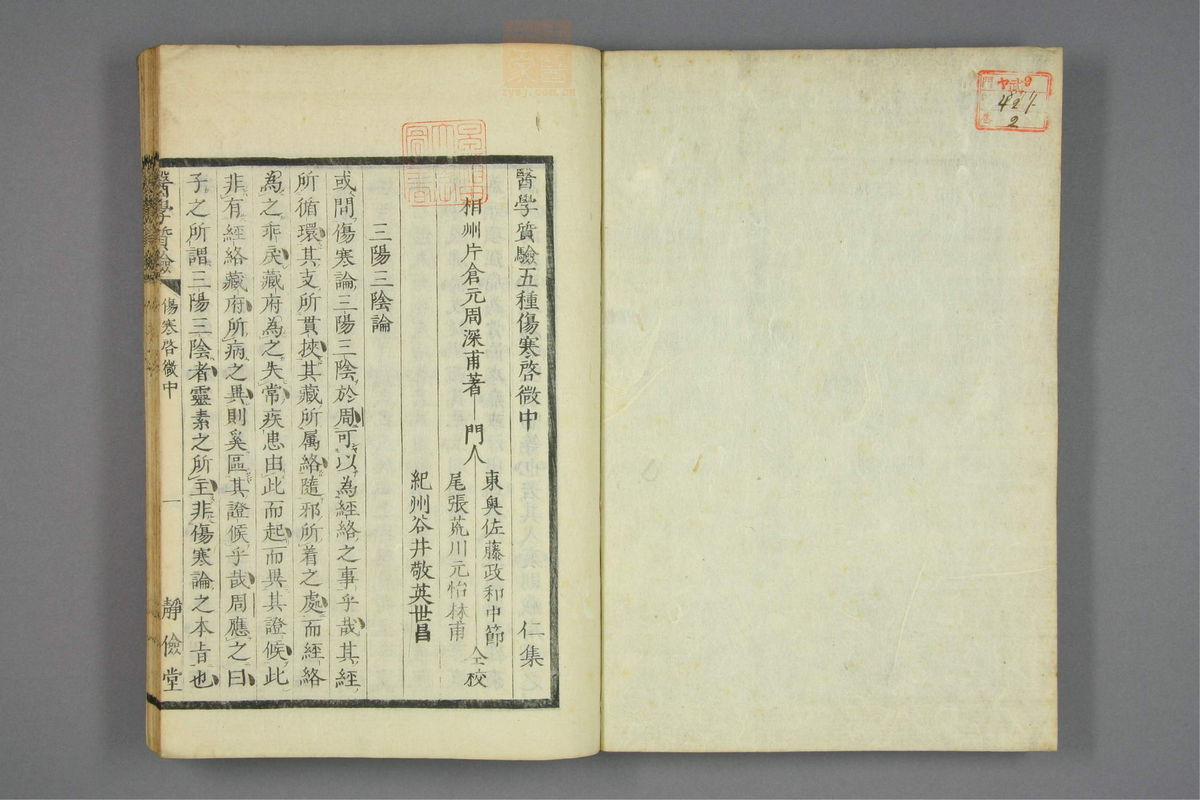 門
42
2
醫學質驗五種傷寒啓微中 仁集
相州片倉元周深甫著 門人
東奥佐藤政和中節
尾張荒川元怡林甫
仝校
紀州谷井敬英世昌
三陽三陰論
或問傷寒論三陽三陰於周可以為經絡之事乎哉其經
所循環其支所貫挾其藏所属絡隨邪所着之處而經絡
為之乖戾藏府為之失常疾患由此而起而異其證候此
非有經絡藏府所病之異則奚區其證候乎哉周應之曰
子之所謂三陽三陰者靈素之所主非傷寒論之本旨也
醫學質驗 傷寒啓微中 一 靜儉堂